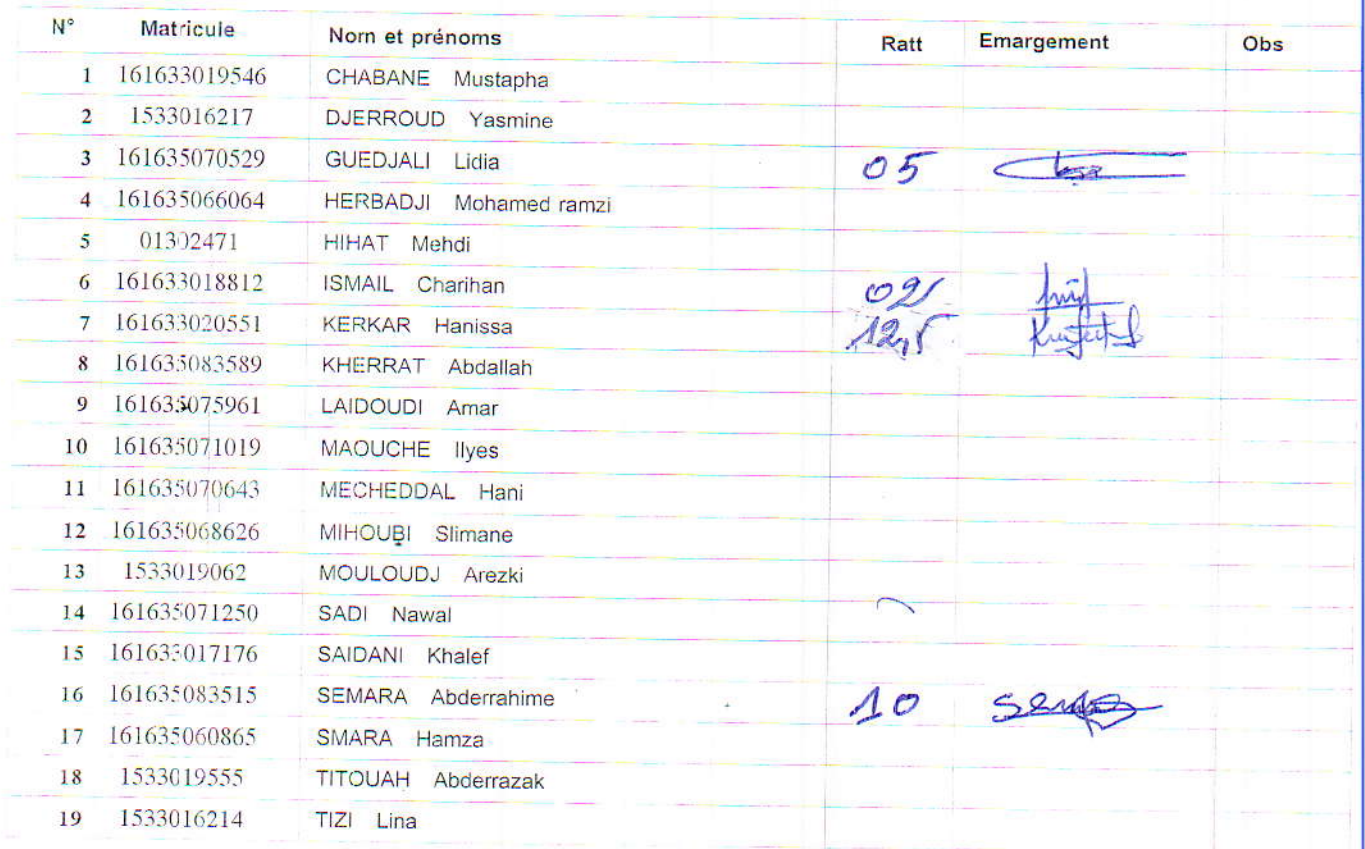 N° Matricule Nom et prénoms Ratt Emargement Obs
1 161633019546 CHABANE Mustapha
2 1533016217 DJERROUD Yasmine
3 161635070529 GUEDJALI Lidia 05
4 161635066064 HERBADJI Mohamed ramzi
5 01302471 HIHAT Mehdi
6 161633018812 ISMAIL Charihan 02
7 161633020551 KERKAR Hanissa 12,5
8 161635083589 KHERRAT Abdallah
9 161635075961 LAIDOUDI Amar
10 161635071019 MAOUCHE Ilyes
11 161635070643 MECHEDDAL Hani
12 161635068626 MIHOUBI Slimane
13 1533019062 MOULOUDJ Arezki
14 161635071250 SADI Nawal
15 161633017176 SAIDANI Khalef
16 161635083515 SEMARA Abderrahime 10
17 161635060865 SMARA Hamza
18 1533019555 TITOUAH Abderrazak
19 1533016214 TIZI Lina